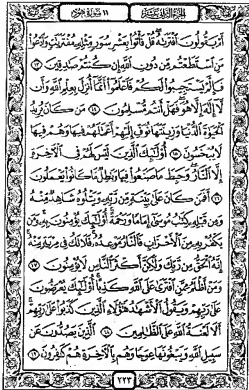 الجزء الثاني عشر ١١ سورة هود
أَمْ يَقُولُونَ ٱفْتَرَىٰهُ قُلْ فَأْتُوا۟ بِعَشْرِ سُوَرٍ مِّثْلِهِۦ مُفْتَرَيَـٰتٍ وَٱدْعُوا۟
مَنِ ٱسْتَطَعْتُم مِّن دُونِ ٱللَّهِ إِن كُنتُمْ صَـٰدِقِينَ ١٣
فَإِلَّمْ يَسْتَجِيبُوا۟ لَكُمْ فَٱعْلَمُوٓا۟ أَنَّمَآ أُنزِلَ بِعِلْمِ ٱللَّهِ وَأَن
لَّآ إِلَـٰهَ إِلَّا هُوَ فَهَلْ أَنتُم مُّسْلِمُونَ ١٤ مَن كَانَ يُرِيدُ
ٱلْحَيَوٰةَ ٱلدُّنْيَا وَزِينَتَهَا نُوَفِّ إِلَيْهِمْ أَعْمَـٰلَهُمْ فِيهَا وَهُمْ فِيهَا
لَا يُبْخَسُونَ ١٥ أُو۟لَـٰٓئِكَ ٱلَّذِينَ لَيْسَ لَهُمْ فِى ٱلْـَٔاخِرَةِ
إِلَّا ٱلنَّارُ وَحَبِطَ مَا صَنَعُوا۟ فِيهَا وَبَـٰطِلٌ مَّا كَانُوا۟ يَعْمَلُونَ
١٦ أَفَمَن كَانَ عَلَىٰ بَيِّنَةٍ مِّن رَّبِّهِۦ وَيَتْلُوهُ شَاهِدٌ مِّنْهُ
وَمِن قَبْلِهِۦ كِتَـٰبُ مُوسَىٰٓ إِمَامًا وَرَحْمَةً أُو۟لَـٰٓئِكَ يُؤْمِنُونَ بِهِۦ وَمَن
يَكْفُرْ بِهِۦ مِنَ ٱلْأَحْزَابِ فَٱلنَّارُ مَوْعِدُهُۥ فَلَا تَكُ فِى مِرْيَةٍ مِّنْهُ
إِنَّهُ ٱلْحَقُّ مِن رَّبِّكَ وَلَـٰكِنَّ أَكْثَرَ ٱلنَّاسِ لَا يُؤْمِنُونَ ١٧
وَمَنْ أَظْلَمُ مِمَّنِ ٱفْتَرَىٰ عَلَى ٱللَّهِ كَذِبًا أُو۟لَـٰٓئِكَ يُعْرَضُونَ
عَلَىٰ رَبِّهِمْ وَيَقُولُ ٱلْأَشْهَـٰدُ هَـٰٓؤُلَآءِ ٱلَّذِينَ كَذَبُوا۟ عَلَىٰ رَبِّهِمْ
أَلَا لَعْنَةُ ٱللَّهِ عَلَى ٱلظَّـٰلِمِينَ ١٨ ٱلَّذِينَ يَصُدُّونَ عَن
سَبِيلِ ٱللَّهِ وَيَبْغُونَهَا عِوَجًا وَهُم بِٱلْـَٔاخِرَةِ هُمْ كَـٰفِرُونَ ١٩
٢٢٣